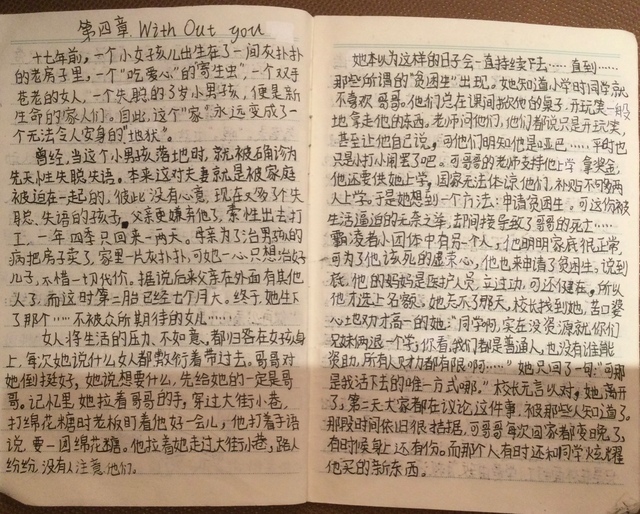 第四章. With Out you
十七年前，一个小女孩儿出生在了一间灰扑扑
的老房子里，一个“吃爱心”的“寄生虫”，一个双手
苍老的女人，一个失聪的3岁小男孩，便是新
生命的家人们。自此，这个“家”永远变成了一
个无法令人安身的“地狱”。
曾经，当这个小男孩落地时，就被石角诊为
先天性失聪失语。本来这对夫妻就是被家庭
被迫在一起的，彼此没有心意，现在又多了个失
聪、失语的孩子，父亲更嫌弃他了，索性出去打
工，一年四季只回来一两天。母亲为了治男孩的
病把房子卖了，家里一片灰扑扑，可她一心只想治好
儿子，不惜一切代价。据说后来父亲在外面有其他
人了，而这时第二胎已经七个月大。终于，她生下
了那个……不被众所期待的女儿……
女人将生活的压力、不如意，都归咎在女孩身
上，每次她说什么女人都敷衍着带过去。哥哥对
她倒挺好，她说想要什么，先给她的一定是哥
哥。记忆里她拉着哥哥的手，穿过大街小巷，
打绵花糖时老板盯着他好一会儿，他打着手语
说，要一团绵花糖。他拉着她走过大街小巷，路人
纷纷，没有人注意他们。
她本以为这样的日子会一直持续下去……直到……
那些所谓的“贫困生”出现。她知道小学时同学就
不喜欢哥哥。他们总在课间掀他的桌子，开玩笑一般
地拿走他的东西。老师问他们，他们都说只是开玩笑，
甚至让他自己说，可他们明知他是哑巴……平时也
只是小打小闹罢了吧。可哥哥的老师支持他上学拿奖金，
他还要供她上学，国家无法体谅他们，补贴不可够两
人上学。于是她想到一个方法：申请贫困生。可这份被
生活逼迫的无奈之举，却间接导致了哥哥的死亡……
霸凌者小团体中有另一个人，他明明家底很正常
可为了他该死的虚荣心，他也来申请了贫困生。说到
底，他的妈妈是医护人员，立过功，可还健在，所以
他才选上名额。她忘不了那天，校长找到她，苦口婆
心地劝才高一的她：“同学啊，实在没资源就你们
兄妹两退一个学，你看，我们都是普通人，也没有谁能
资助，所有人财力都有限啊……”她只回了一句：“可那
是我活下去的唯一方式哪。”校长无言以对，她离开
了，第二天大家都在议论这件事，被那些人知道了。
那段时间依旧很拮据，可哥哥每次回家都变晚了，
有时候身上还有伤。而那个人有时还和同学炫耀
他买的新东西。